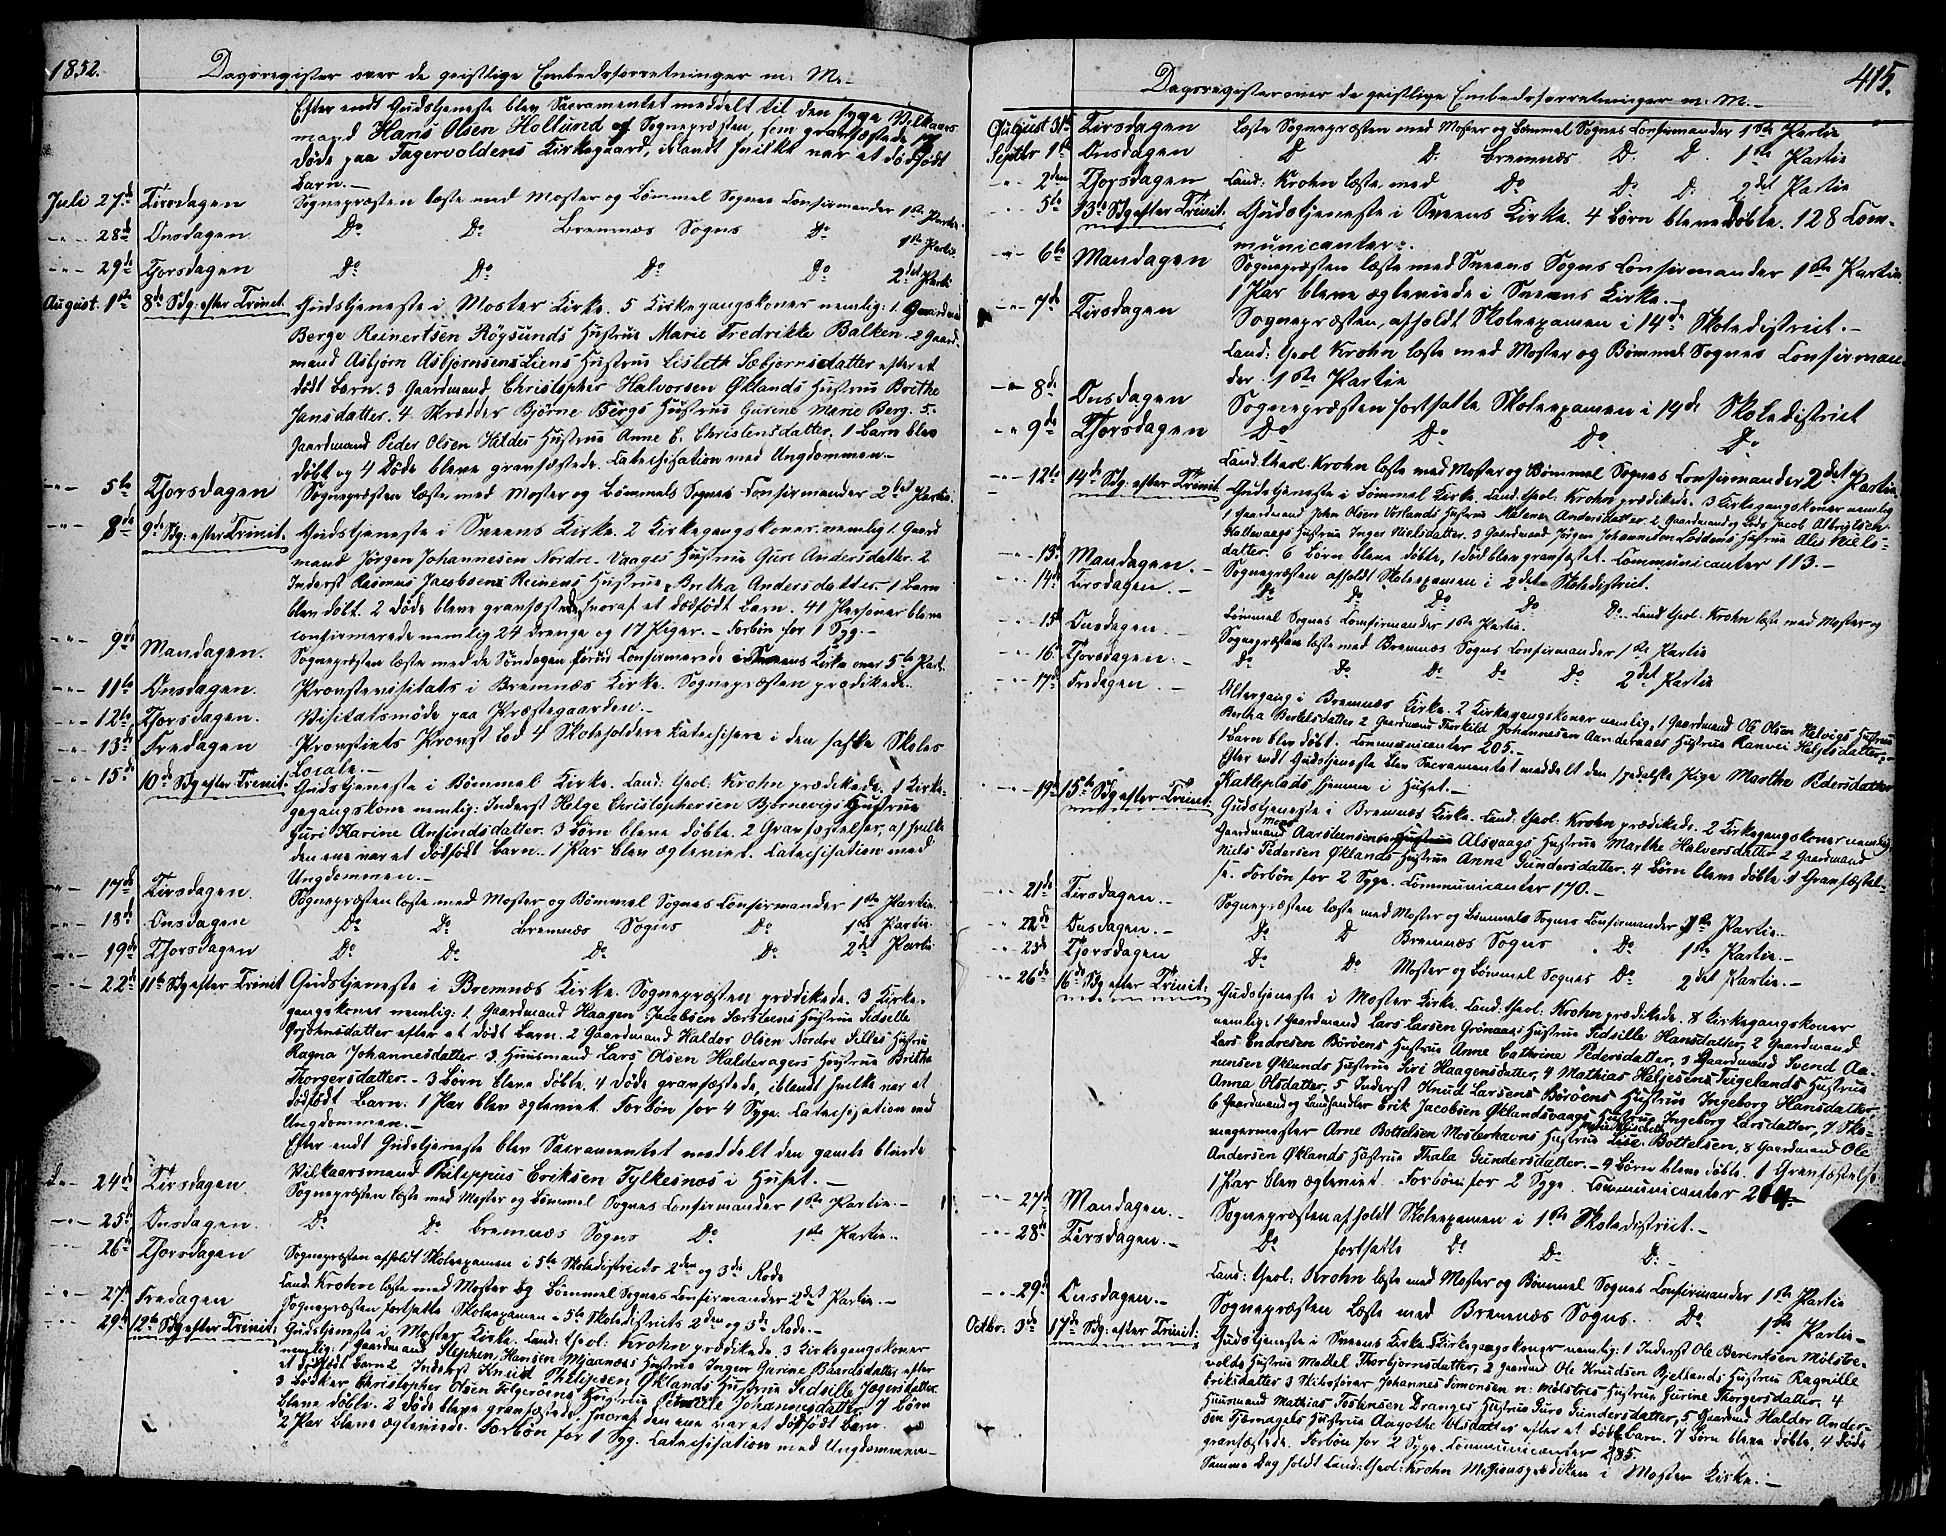 1852.
Dagsregister over de geistlige Embedsforretninger m: M.
Efter endt Gudstjeneste blev Sacramentet meddelt til den syge Vilkaars
mand Hans Olsen Hollund af Sognepræsten, som gravfæstede
døde paa Fagervoldens Kirkegaard, iblandt hvilke var et dødfødt
Barn.
Juli 27de Tirsdagen Sognepræsten læste med Moster og Bømmel Sognes Confirmander 1ste Partie.
-"- 28de Onsdagen Do Do Bremnæs Sogns Do 1ste Partie.
-"- 29de Thorsdagen Do Do Do Do 2det Parti
August. 1ste 8de Sdg: efter Trinit. Gudstjeneste i Moster Kirke. 5 Kirkegangskoner nemlig: 1. Gaardmand
Berge Reinertsen Røgsunds Hustrue Marie Fredrikke Balken. 2 Gaard-
mand Asbjørn Asbjørnsens Liens Hustrue Lisbeth Sæbjørnsdatter efter et
dødt Barn. 3 Gaardmand, Christopher Halvorsen Øklands Hustrue Brithe
Jansdatter. 4. Skrædder Bjørne Bergs Hustrue Gurine Marie Berg. 5.
Gaardmand Peder Olsen Hildes Hustrue Anne C. Christensdatter. 1 Barn blev
døbt og 4 Døde bleve gravfæstede. Catechisation med Ungdommen.-
-"- 5te Thorsdagen Sognepræsten læste med Moster og Bømmels Sognes Confirmander 2det Partie
-"- 8de 9de Sdg: efter Trinit: Gudstjeneste i Sveens Kirke. 2 Kirkegangskoner nemlig 1. Gaard
mand Jörgen Johannesen Nordre-Vaages Hustrue Guri Andersdatter. 2
Inderst Rasmus Jacobsens Reinens Hustrue Bertha Andersdatter. 1 Barn
blev døbt. 2 døde bleve gravfæstede, hvoraf et dødfødt Barn. 41 Personer bleve
confirmerede nemlig 24 Drenge og 17 Piger. - Forbøn for 1 Syg.-
-"- 9de Mandagen. Sognepræsten læste med de Söndagen forud Confirmerede i Sveens Kirke over 5te Part.
-"- 11te Onsdagen. Provstevisitats i Bremnæs Kirke. Sognepræsten prædikede.
-"- 12te Thorsdagen. Visitatsmöde paa Præstegaarden.-
-"- 13de Fredagen Provstiets Provst lod 4 Skoleholdere Catechisere i den faste Skoles
Locale.-
-"- 15de 10de Sdg efter Trinit. Gudstjeneste i Bömmel Kirke. Cand: theol: Krohn prædikede. 1 Kirke-
gegangskone nemlig: Inderst Helge Christophersen Bjørnevigs Hustrue
Guri Karine Anfindsdatter. 3 Børn bleve døbte. 2 Gravfæstelser, af hvilke
den ene var et dødfødt Barn. - 1 Par blev ægteviet. Catechisation med
Ungdommen.-
-"- 17de Tirsdagen. Sognepræsten læste med Moster og Bömmel Sognes Confirmander 1ste Partie.
-"- 18de Onsdagen Do Do Bremnæs Sogns Do 1ste Partie.
-"- 19de Thorsdagen Do Do Do Do 2det Partie
-"- 22de 11te Sdg efter Trinit Gudstjeneste i Bremnæs Kirke. Sognepræsten prædikede. 3 Kirke-
gangskoner nemlig: 1. Gaardmand Haagen Jacobsen Sørstens Hustrue Sidselle
Gjøensdatter efter et dødt Barn. 2 Gaardmand Haldor Olsen Nordre Filles Hustru
Ragna Johannesdatter. 3. Huusmand Lars Olsen Halderagers Hustrue Brithe
Thorgersdatter. - 3 Børn bleve døbte. 4 døde gravfæstede, iblandt hvilke var et
dødfødt Barn: 1 Par blev ægteviet. Forbön for 4 Syge. Catechisation med
Ungdommen.-
Efter endt Gudstjeneste blev Sacramentet meddelt den gamle blinde
Vilkaarsmand Philippus Eriksen Fylkesnæs i Huset.-
-"- 24de Tirsdagen Sognepræsten læste med Moster og Bömmel Sognes Confirmander 1ste Partie.-
-"- 25de Onsdagen. Do Do Bremnæs Sogns Do 1ste Partie.-
-"- 26de Thorsdagen Sognepræsten afholdt Skoleexamen i 5te Skoledistricts 2den og 3die Rode
Cand: Krohn læste med Moster og Bömmel Sognes Confirmander 2det Partie.-
-"- 27de Fredagen Sognepræsten fortsatte Skoleexamen - 5te Skoledistricts 2den og 3de Rode.-
-"- 29de 12te Sdg efter Trinit: Gudstjeneste i Moster Kirke. Cand: theol: Krohn prædikede. 3 Kirkegangskoner
nemlig: 1 Gaardmand Stephen Hansen Mjaanæs Hustrue Inger Gurine Baardsdatter efter
et dødfødt Barn 2 Inderst Knud Philipsen Øklands Hustrue Sidsille Jægersdatter.
3 Bødker Christopher Olsen Folgerøens Hustrue Johannesdatter. 7 Børn
bleve døbte. 2 Døde bleve gravfæstede, hvoraf den ene var et dødfødt Barn.
2 Par bleve ægteviede. Forbøn for 1 Syg. Catechisation med Ungdommen-
415.
Dagsregister over de geistlige Embedsforretninger m: M.-
August 31te Tirsdagen Læste Sognepræsten med Moster og Bømmel Sognes Confirmander 1ste Partie
Septbr 1ste Onsdagen D D. Bremnæs D. D. 1ste Partie
-"- 2den Thorsdagen Cand: Krohn læste med Do Do D: 2det Partie
-"- 5te 13de Sdg efter Trinit. Gudstjeneste i Sveens Kirke. 4 Børn bleve døbte. 128 Com-
municanter.
-"- 6te Mandagen Sognepræsten læste med Sveens Sogns Confirmander 1ste Partie.
1 Par bleve ægteviede i Sveens Kirke.-
-"- 7de Tirsdagen Sognepræsten, afholdt Skoleexamen i 14de Skoledistrict.-
Cand: theol Krohn læste med Moster og Bömmel Sognes Confirman-
der. 1ste Partie
-"- 8de Onsdagen Sognepræsten fortsatte Skoleexamen i 14de Skoledistrict
-"- 9de Thorsdagen Do Do Do Do
Cand. theol. Krohn læste med Moster og Bømmel Sognes Confirmander 2det Partie
-"- 12te 14de Sdg. efter Trinit Gudstjeneste i Bömmel Kirke. Cand. theol. Krohn prædikede. 3 Kirkegangskoner nemlig
1 Gaardmand John Olsen Vorlands Hustrue Malene Andersdatter 2 Gaardmand og Lods Jacob Albrigtsen
Kallevaags Hustrue Inger Nielsdatter. 3 Gaardmand Jörgen Johannesen Loddens Hustrue Ales Niels-
datter. 6 Børn bleve døbte, 1 død blev gravfæstet. Communicanter 113.-
-"- 13de Mandagen.- Sognepræsten afholdt Skoleexamen i 2det Skoledistrict.
-"- 14de Tirsdagen.- Do Do Do Do Do. Cand theol. Krohn læste med Moster og
Bömmel Sognes Confirmander 1ste Partie.
-"- 15de Onsdagen.- Sognepræsten læste med Bremnæs Sogns Confirmander 1ste Partie
-"- 16. Thorsdagen.- Do Do Do Do Do 2det Partie
-"- 17de Fredagen.- Altergang i Bremnæs Kirke. 2 Kirkegangskoner nemlig, 1 Gaardmand Ole Olsen Helvigs Hustrue
Bertha Bertelsdatter 2 Gaardmand Thorkild Johannesen Aanderaaes Hustrue Ranvei Helgesdatter,
1 Barn blev døbt. Communicanter 205.-
Efter endt Gudstjeneste blev Sacramentet meddelt den spedalske Pige Marthe Pedersdatter
Kalleplads hjemme i Huset.-
-"- 19de 15te Sdg efter Trinit: Gudstjeneste i Bremnæs Kirke. Cand: theol: Krohn prædikede. 2 Kirkegangskoner nemlig
Gaardmand Mons Aarstensens Hustrue Alsvaags Hustrue Marthe Halversdatter 2 Gaardmand
Niels Pedersen Øklands Hustrue Anna Gundersdatter. 4 Børn bleve døbte. 1 Gravfæstel-
se. Forbøn for 2 Syge. Communicanter 170.-
-"- 21de Tirsdagen.- Sognepræsten læste med Moster og Bömmels Sognes Confirmander 1ste Partie.
-"- 22de Onsdagen.- Do D Bremnæs Sogns Do 1ste Partie.-
-"- 23de Thorsdagen Do Do Moster og Bömmel Sognes Do 2det Partie.-
-"- 26de 16de Sdg efter Trinit: Gudstjeneste i Moster Kirke. Cand: theol: Krohn prædikede. 8 Kirkegangskoner
nemlig: 1 Gaardmand Lars Larsen Grönaas Hustrue Sidsille Hansdatter, 2 Gaardmand
Lars Endresen Börøens Hustrue Anne Cathrine Pedersdatter, 3 Gaardmand Svend Aa-
nensen Øklands Hustrue Siri Haagensdatter, 4 Mathias Heljesens Teigelands Hustrue
Anna Olsdatter, 5 Inderst Knud Larsens Börøens Hustrue Ingeborg Hansdatter,
6 Gaardmand og Landhandler Erik Jacobsen Øklandsvaags Hustrue Ingeborg Larsdatter, 7 Sko-
magermester Arne Bottelsen Mosterhavns Hustrue Lise Bottelsen, 8 Gaardmand Ole
Andersen Øklands Hustrue Thala Gundersdatter. - 9 Børn bleve døbte. 1 Gravfæstelse.
1 Par blev ægteviet. Forbøn for 2 Syge. Communicanter 204.
-"- 27de Mandagen.- Sognepræsten afholdt Skoleexamen i 1ste Skoledistrict.-
-"- 28de Tirsdagen.- Do fortsatte Do Do D:-
Cand: theol: Krohn læste med Moster og Bømmel Sognes Confirmander 1ste Partie
-"- 29de Onsdagen.- Sognepræsten læste med Bremnæs Sogns. Do 1ste Partie-
Octbr: 3de 17de Sdg: efter Trinit: Gudstjeneste i Sveens Kirke. Kirkegangskoner nemlig: 1 Inderst Ole Berentsen Mölstre-
volds Hustrue Mallel Thorbjørnsdatter, 2 Gaardmd Ole Knudsen Bjellands Hustrue Ragnille
Eriksdatter 3 Skibsfører Johannes Simonsen n: Mölstres Hustrue Gurine Thorgersdatter, 4
Huusmand Mathias Tostensen Dranges Hustrue Guro Gundersdatter, 5 Gaardmd Haldor Ander-
sen Tjernagels Hustrue Aagothe Olsdatter efter et dødt Barn. 7 Børn bleve døbte, 4 døde
gravfæstede. Forbøn for 2 Syge. Communicanter 285.
Samme Dag holdt Cand: theol: Krohn Missionsprædiken i Moster Kirke.-